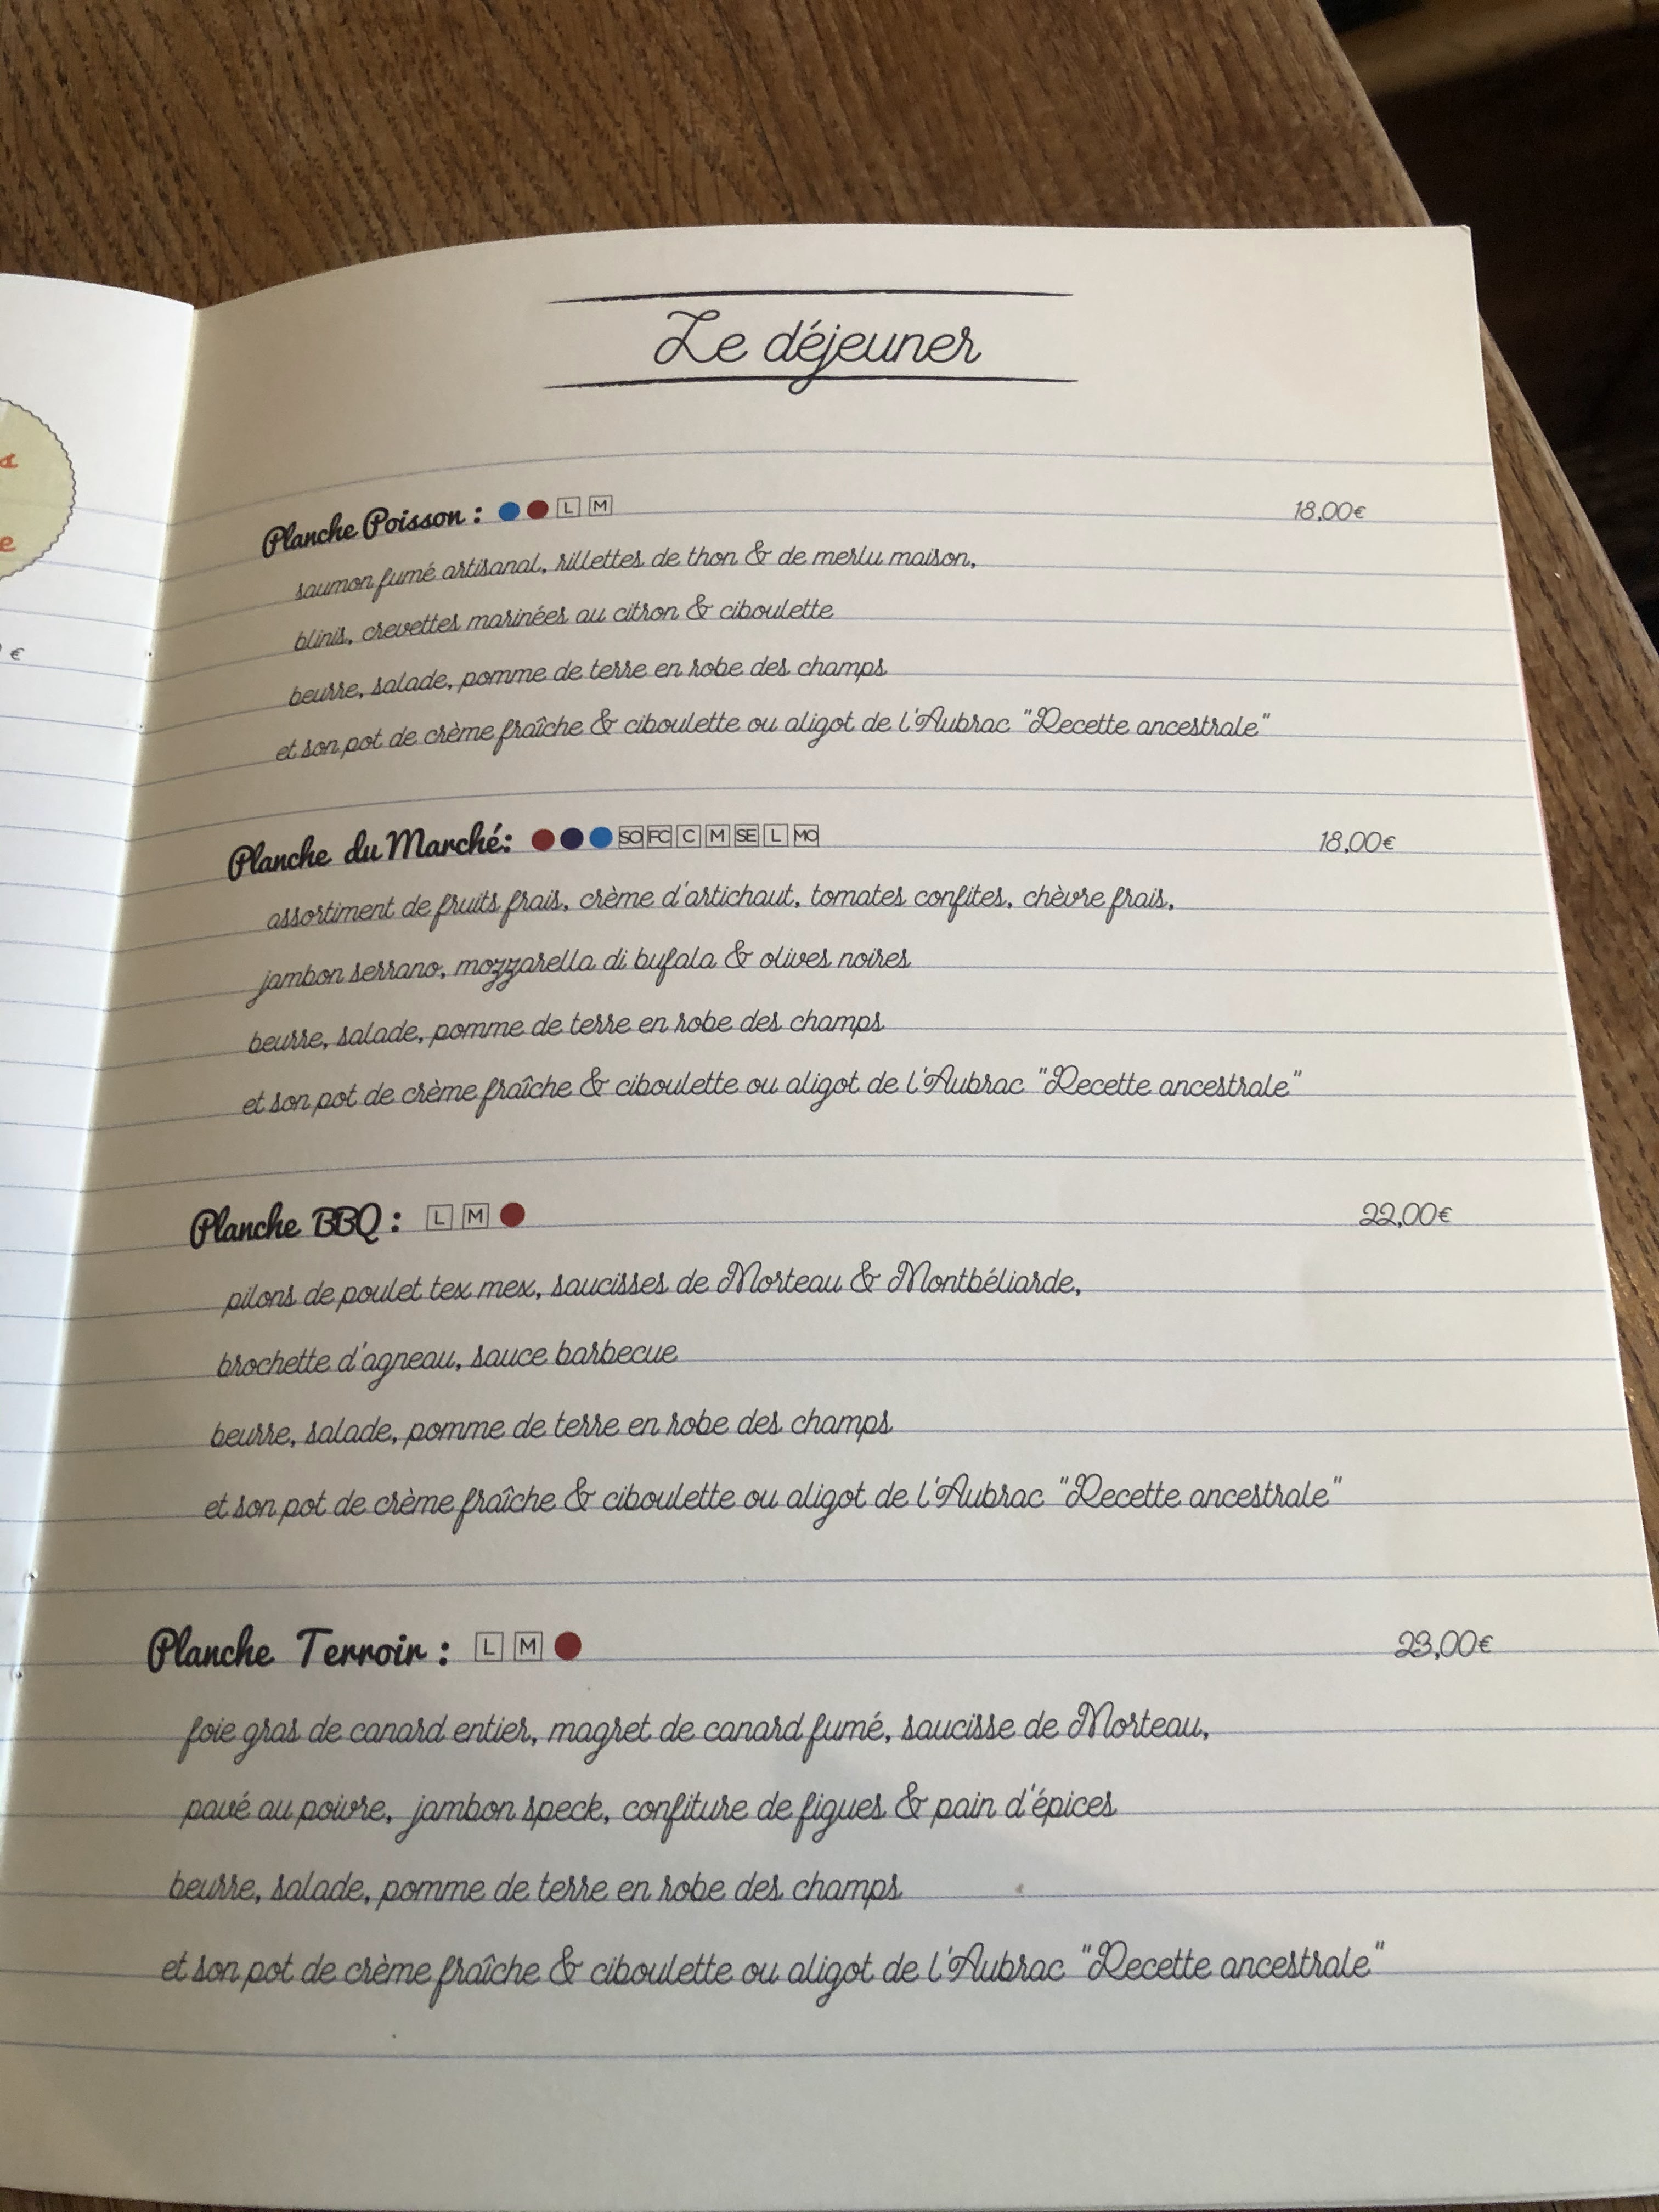 Le déjeuner
Planche Poisson : L M 18,00€
saumon fumé artisanal, rillettes de thon & de merlu maison,
blinis, crevettes marinées au citron & ciboulette
beurre, salade, pomme de terre en robe des champs
et son pot de crème fraîche & ciboulette ou aligot de l'Aubrac "Recette ancestrale"
€
Planche du Marché: SO FC C M SE L MO 18,00€
assortiment de fruits frais, crème d'artichaut, tomates confites, chèvre frais,
jambon serrano, mozzarella di bufala & olives noires
beurre, salade, pomme de terre en robe des champs
et son pot de crème fraîche & ciboulette ou aligot de l'Aubrac "Recette ancestrale"
Planche BBQ : L M 22,00€
pilons de poulet tex mex, saucisses de Morteau & Montbéliarde,
brochette d'agneau, sauce barbecue
beurre, salade, pomme de terre en robe des champs
et son pot de crème fraîche & ciboulette ou aligot de l'Aubrac "Recette ancestrale"
Planche Terroir : L M 23,00€
foie gras de canard entier, magret de canard fumé, saucisse de Morteau,
pavé au poivre, jambon speck, confiture de figues & pain d'épices
beurre, salade, pomme de terre en robe des champs
et son pot de crème fraîche & ciboulette ou aligot de l'Aubrac "Recette ancestrale"